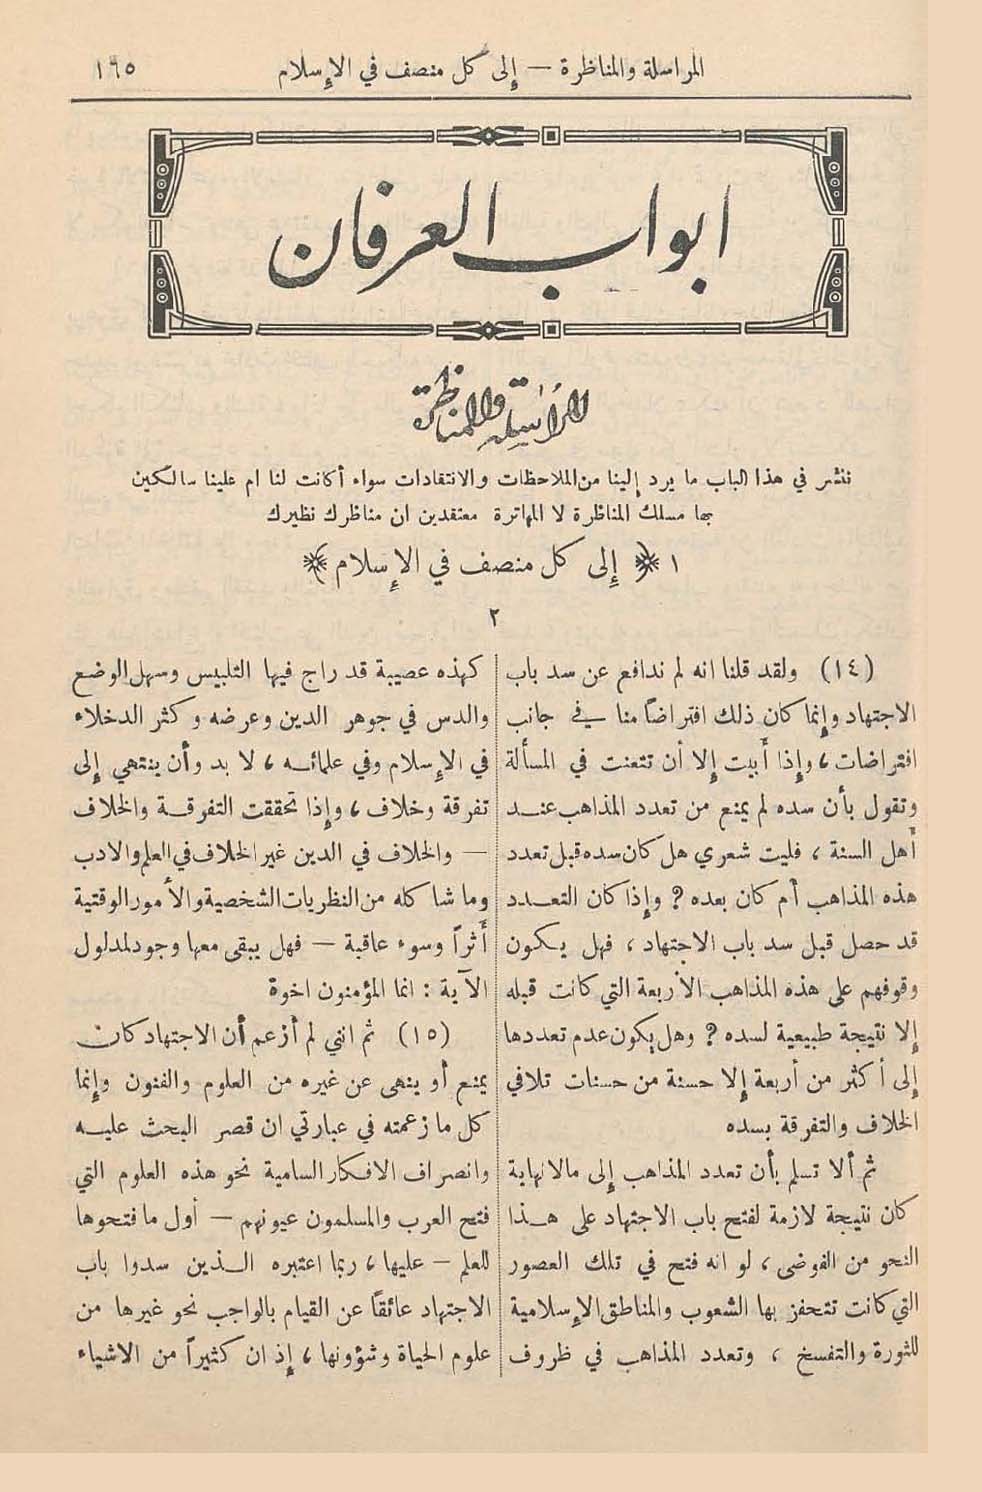 المراسلة والمناظرة — إلى كل منصف في الإسلام
١٦٥
ابواب العرفان
المراسلة والمناظرة
ننشر في هذا الباب ما يرد إلينا من الملاحظات والانتقادات سواء أكانت لنا ام علينا سالكين
بها مسلك المناظرة لا المهاترة معتقدين ان مناظرك نظيرك
١ ﴿ إلى كل منصف في الإسلام ﴾
٢
(١٤) ولقد قلنا انه لم ندافع عن سد باب
الاجتهاد وإنما كان ذلك افتراضاً منا في جانب
افتراضات ، وإذا أبيت إلا أن تتعنت في المسألة
وتقول بأن سده لم يمنع من تعدد المذاهب عند
أهل السنة ، فليت شعري هل كان سده قبل تعدد
هذه المذاهب أم كان بعده ? وإذا كان التعدد
قد حصل قبل سد باب الاجتهاد ، فهل يكون
وقوفهم على هذه المذاهب الأربعة التي كانت قبله
إلا نتيجة طبيعية لسده ? وهل يكون عدم تعددها
إلى أكثر من أربعة إلا حسنة من حسنات تلافي
الخلاف والتفرقة بسده
ثم ألا تسلم بأن تعدد المذاهب إلى مالانهاية
كان نتيجة لازمة لفتح باب الاجتهاد على هذا
النحو من الفوضى ، لو انه فتح في تلك العصور
التي كانت تتحفز بها الشعوب والمناطق الإسلامية
للثورة والتفسخ ، وتعدد المذاهب في ظروف
كهذه عصيبة قد راج فيها التلبيس وسهل الوضع
والدس في جوهر الدين وعرضه وكثر الدخلاء
في الإسلام وفي علمائه ، لا بد وأن ينتهي إلى
تفرقة وخلاف ، وإذا تحققت التفرقة والخلاف
— والخلاف في الدين غير الخلاف في العلم والادب
وما شاكله من النظريات الشخصية والأمور الوقتية
أثراً وسوء عاقبة — فهل يبقى معها وجود لمدلول
الآية : انما المؤمنون اخوة
(١٥) ثم انني لم أزعم أن الاجتهاد كان
يمنع أو ينهى عن غيره من العلوم والفنون وإنما
كل ما زعمته في عبارتي ان قصر البحث عليه
وانصراف الافكار السامية نحو هذه العلوم التي
فتح العرب والمسلمون عيونهم — أول ما فتحوها
للعلم — عليها ، ربما اعتبره الذين سدوا باب
الاجتهاد عائقاً عن القيام بالواجب نحو غيرها من
علوم الحياة وشؤونها ، إذ ان كثيراً من الاشياء